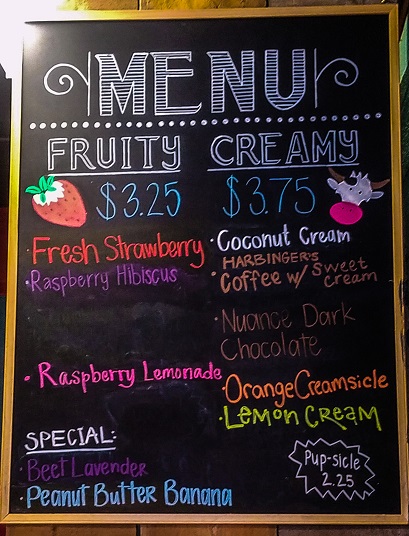 MENU
FRUITY
$3.25
Fresh Strawberry
Raspberry Hibiscus
Raspberry Lemonade
CREAMY
$3.75
Coconut Cream
HARBINGER'S
Coffee w/ Sweet
cream
Nuance Dark
Chocolate
Orange Creamsicle
Lemon Cream
SPECIAL:
Beet Lavender
Peanut Butter Banana
Pup-sicle
2.25